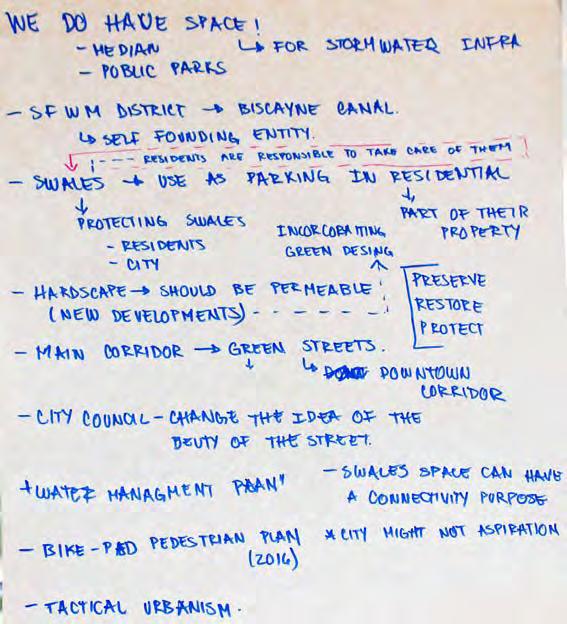 WE DO HAVE SPACE!
- MEDIAN ↳ FOR STORMWATER INFRA
- PUBLIC PARKS
- SFWM DISTRICT → BISCAYNE CANAL.
↳ SELF FOUNDING ENTITY.
RESIDENTS ARE RESPONSIBLE TO TAKE CARE OF THEM
- SWALES → USE AS PARKING IN RESIDENTIAL
PART OF THEIR PROPERTY
PROTECTING SWALES
- RESIDENTS
- CITY
INCORCORATING
GREEN DESING
- HARDSCAPE → SHOULD BE PERMEABLE
(NEW DEVELOPMENTS)
PRESERVE
RESTORE
PROTECT
- MAIN CORRIDOR → GREEN STREETS.
↳ DOWNTOWN
CORRIDOR
- CITY COUNCIL - CHANGE THE IDEA OF THE
BEUTY OF THE STREET.
+ WATER MANAGMENT PLAN"
- SWALES SPACE CAN HAVE
A CONNECTIVITY PURPOSE
- BIKE-PED PEDESTRIAN PLAN
(2016)
* CITY MIGHT NOT ASPIRATION
- TACTICAL URBANISM.